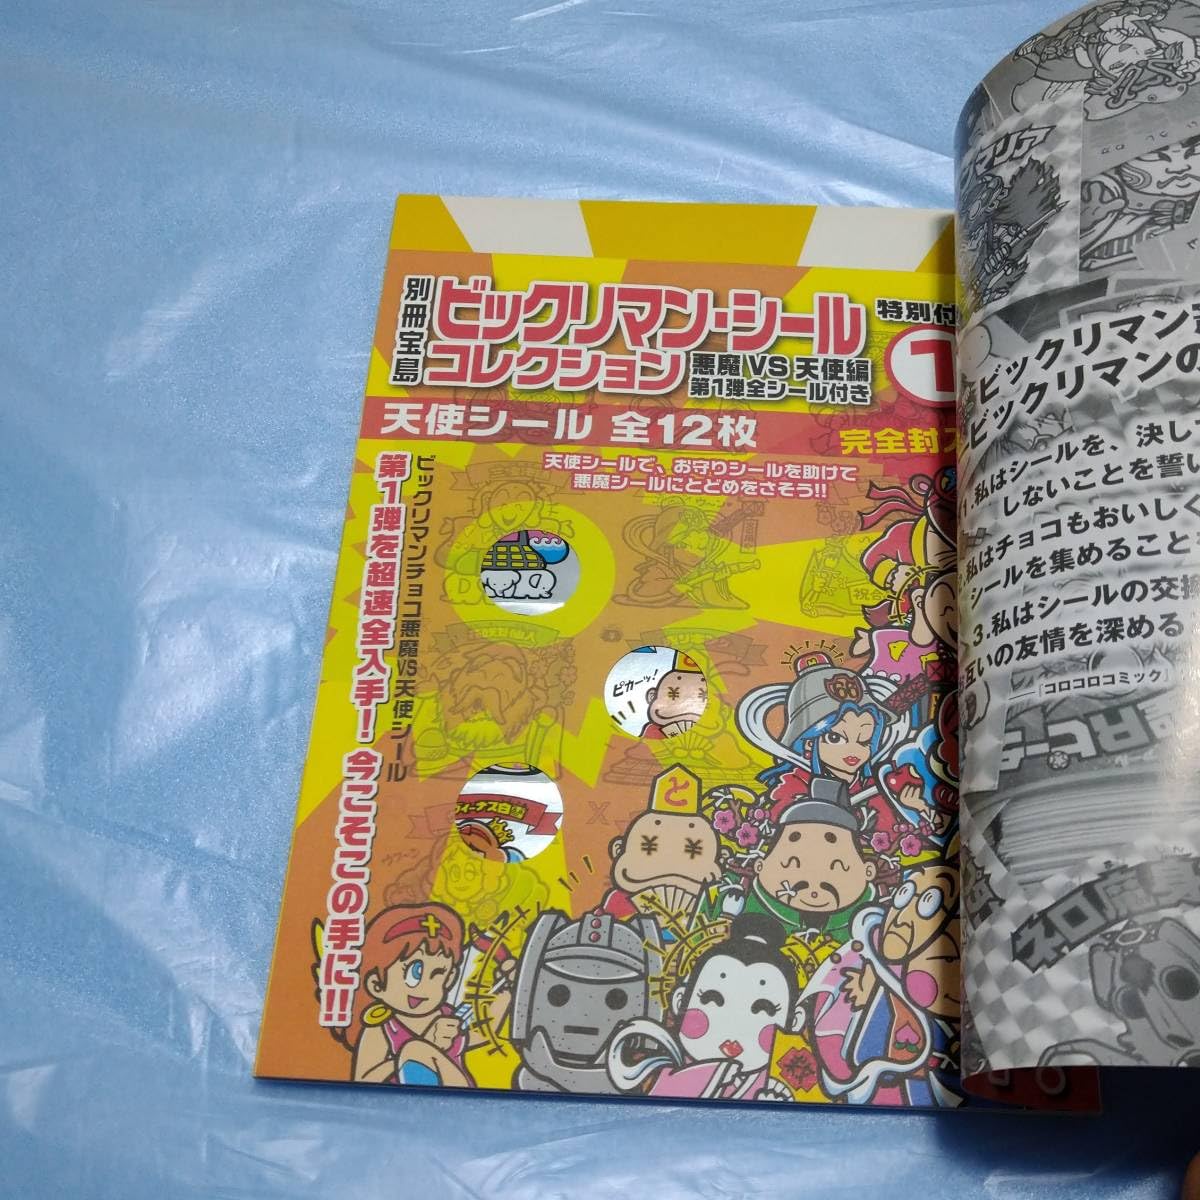 別冊宝島
ビックリマン・シール
コレクション
悪魔VS天使編
第1弾全シール付き
特別付
1
天使シール 全12枚
完全封
天使シールで、お守りシールを助けて
悪魔シールにとどめをさそう!!
ビックリマンチョコ悪魔VS天使シール
第1弾を超速全入手!今こそこの手に!!
ピカーッ!
ヴィーナス白雪
ウフーン
祝合
と
マリア
ビックリマン
ビックリマンの
1.私はシールを、決して
しないことを誓い
私はチョコもおいしく
シールを集めること
3.私はシールの交換
互いの友情を深める
―『コロコロコミック』
ネロ魔